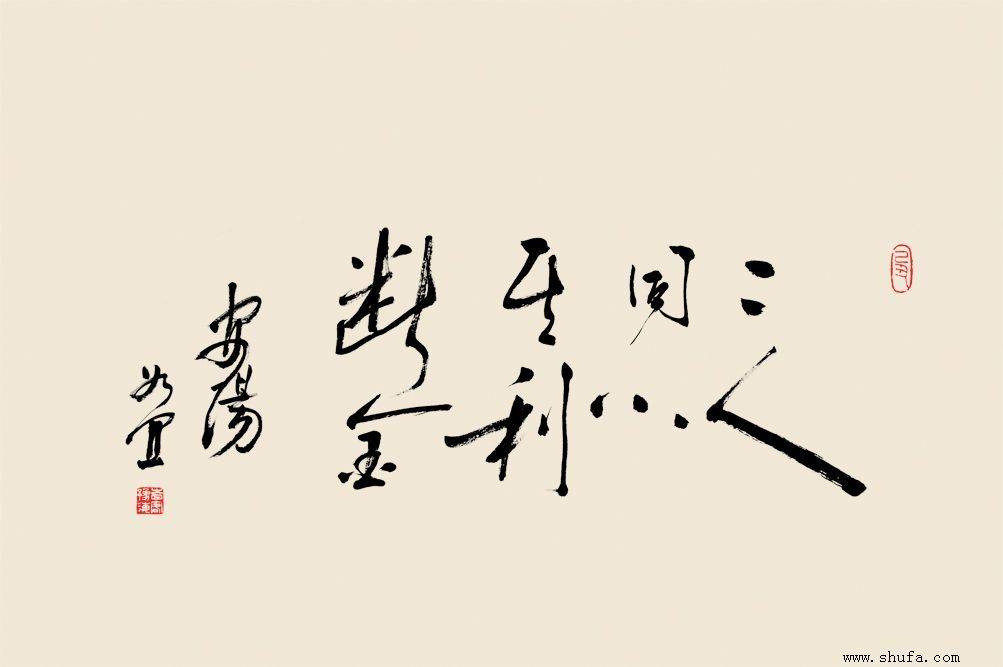 二人
同心
其利
断金
安阳
www.shufa.com